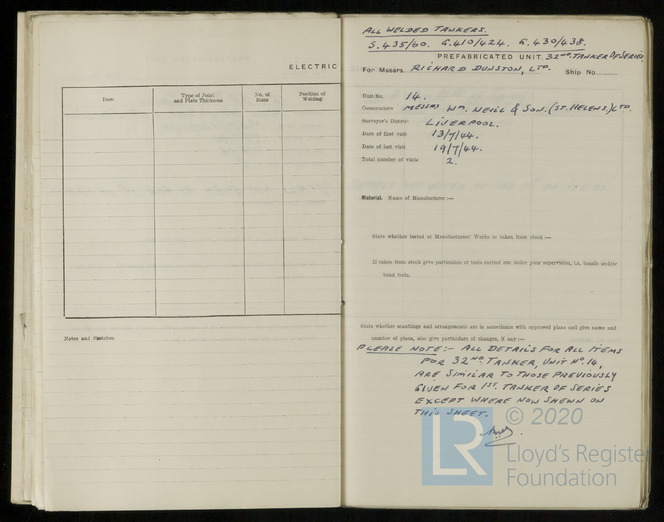 ELECTRIC
Item
Type of Joint
and Plate Thickness
No. of
Runs
Position of
Welding
Notes and Sketches
ALL WELDED TANKERS.
S.435/60. G.410/424. G.430/438.
PREFABRICATED UNIT. 32ND. TANKER OF SERIES
For Messrs. RICHARD DUNSTON, LTD. Ship No.
Unit No. 14.
Constructors MESSRS WM. NEILL & SON. (ST. HELENS.) LTD.
Surveyor's District LIVERPOOL.
Date of first visit 13/7/44.
Date of last visit 19/7/44.
Total number of visits 2.
Material. Name of Manufacturer :—
State whether tested at Manufacturers' Works or taken from stock :—
If taken from stock give particulars of tests carried out under your supervision, i.e. tensile and/or
bend tests.
State whether scantlings and arrangements are in accordance with approved plans and give name and
number of plans, also give particulars of changes, if any :—
PLEASE NOTE:- ALL DETAILS FOR ALL ITEMS
FOR 32ND. TANKER, UNIT NO. 14,
ARE SIMILAR TO THOSE PREVIOUSLY
GIVEN FOR 1ST. TANKER OF SERIES
EXCEPT WHERE NOW SHEWN ON
THIS SHEET.
© 2020
LR
Lloyd's Register
Foundation